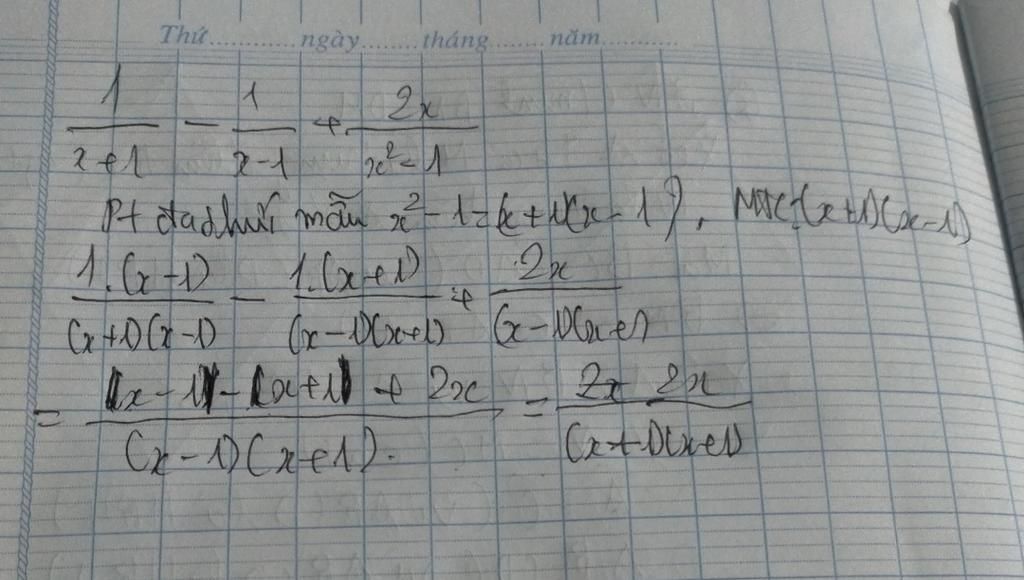 Thứ............ngày........tháng.......năm...........
1/(x+1) - 1/(x-1) + 2x/(x²-1)
mẫu x²-1=(x+1)(x-1), MTC:(x+1)(x-1)
1.(x-1)/((x+1)(x-1)) - 1.(x+1)/((x-1)(x+1)) + 2x/((x-1)(x+1))
= ((x-1)-(x+1)+2x)/((x-1)(x+1)). = (2x 2x)/((x+1)(x+1))